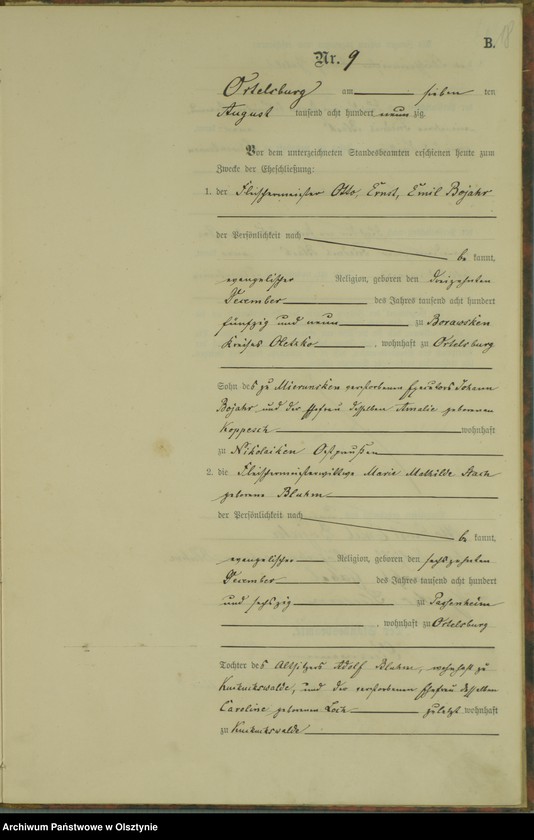 B.
Nr. 9
Ortelsburg am sieben ten
August tausend acht hundert neun zig.
Vor dem unterzeichneten Standesbeamten erschienen heute zum
Zwecke der Eheschließung:
1. der Fleischermeister Otto, Ernst, Emil Bojahr
der Persönlichkeit nach
be kannt,
evangelischer Religion, geboren den dreizehnten
Dezember des Jahres tausend acht hundert
fünfzig und neun zu Borawsken
Kreises Oletzko, wohnhaft zu Ortelsburg
Sohn des zu Mierunsken verstorbenen Exekutors Johann
Bojahr und der Ehefrau desselben Amalie geborenen
Koppesch wohnhaft
zu Nikolaiken Ostpreußen
2. die Fleischermeisterwittwe Marie Mathilde
geborene Bluhm
der Persönlichkeit nach
be kannt,
evangelischer Religion, geboren den sechszehnten
Dezember des Jahres tausend acht hundert
und sechszig zu Passenheim
, wohnhaft zu Ortelsburg
Tochter des Altsitzers Adolf Bluhm, wohnhaft zu
Kukukswalde, und der verstorbenen Ehefrau desselben
Caroline geborenen zuletzt wohnhaft
zu Kukukswalde
Archiwum Państwowe w Olsztynie